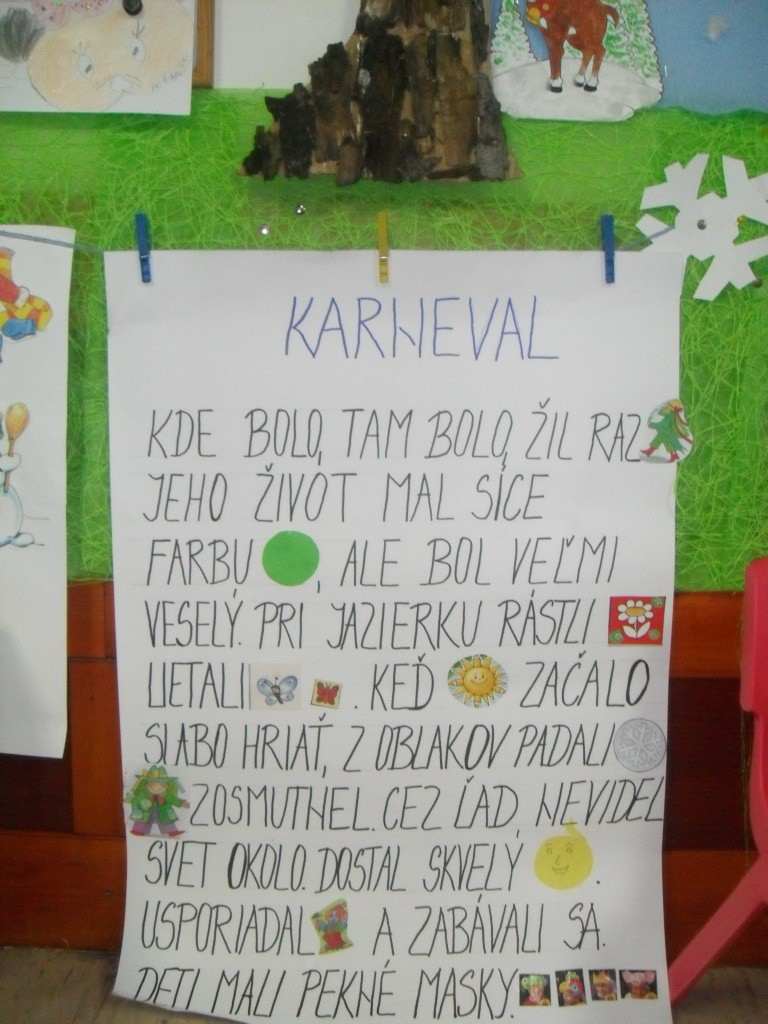 KARNEVAL
KDE BOLO, TAM BOLO, ŽIL RAZ
JEHO ŽIVOT MAL SÍCE
FARBU , ALE BOL VEĽMI
VESELÝ. PRI JAZIERKU RÁSTLI
LIETALI . KEĎ ZAČALO
SLABO HRIAŤ, Z OBLAKOV PADALI
ZOSMUTNEL. CEZ ĽAD, NEVIDEL
SVET OKOLO. DOSTAL SKVELÝ .
USPORIADAL A ZABÁVALI SA.
DETI MALI PEKNÉ MASKY.